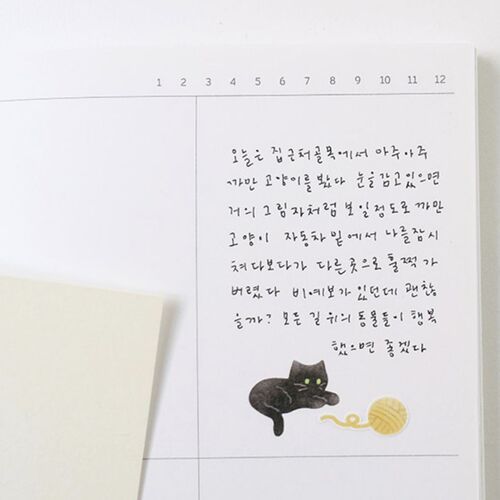 1 2 3 4 5 6 7 8 9 10 11 12
오늘은 집근처골목에서 아주아주
까만 고양이를 봤다 눈을감고있으면
거의 그림자처럼 보일정도로 까만
고양이 자동차밑에서 나를잠시
쳐다보다가 다른곳으로 훌쩍 가
버렸다 비예보가 있던데 괜찮
을까? 모든 길 위의 동물들이 행복
했으면 좋겠다